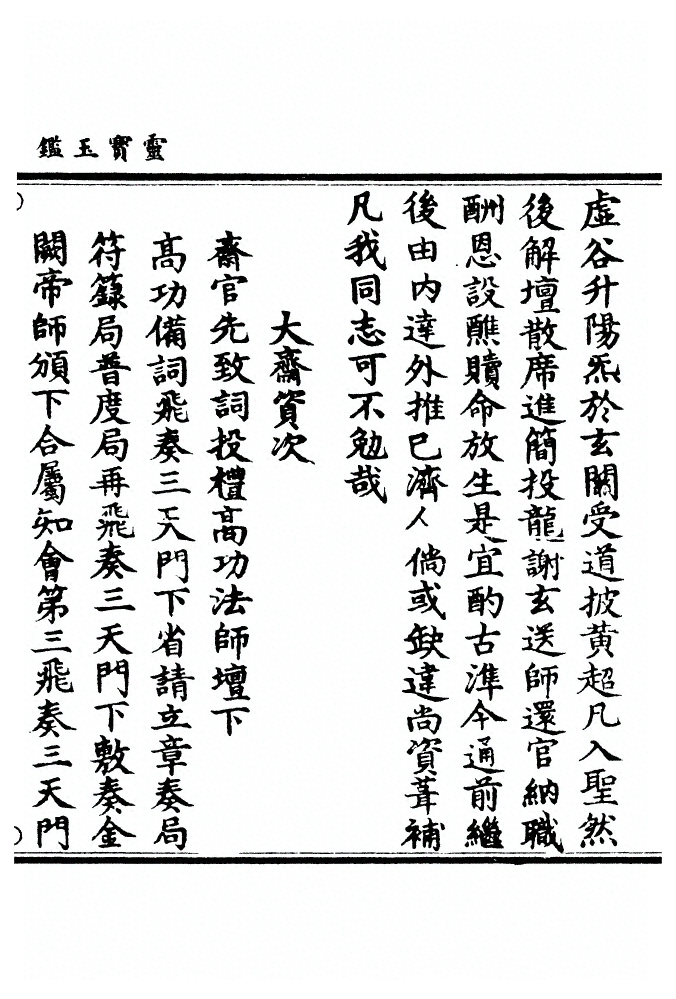 靈寶玉鑑
虛谷升陽炁於玄關受道披黃超凡入聖然
後解壇散席進簡投龍謝玄送師還官納職
酬恩設醮贖命放生是宜酌古準今通前繼
後由內達外推己濟人倘或缺違尚資葺補
凡我同志可不勉哉
大齋資次
齋官先致詞投禮高功法師壇下
高功備詞飛奏三天門下省請立章奏局
符籙局普度局再飛奏三天門下敷奏金
闕帝師頒下合屬知會第三飛奏三天門